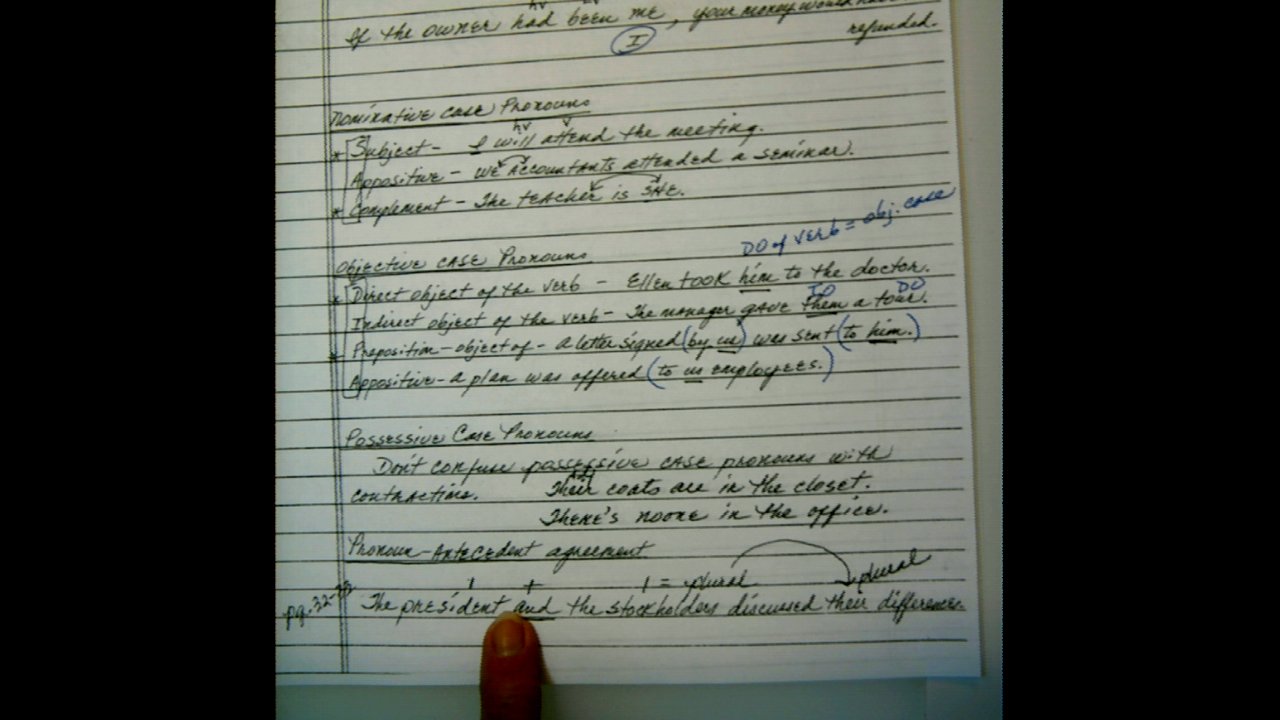 hv
If the owner had been me, your money would have
I
refunded.
Nominative Case Pronouns
hv v
* Subject - I will attend the meeting.
Appositive - we accountants attended a seminar.
* Complement - The teacher is SHE.
DO of verb = obj. case
Objective Case Pronouns
* Direct object of the verb - Ellen took him to the doctor.
IO DO
Indirect object of the verb - The manager gave them a tour.
* Preposition - object of - a letter signed (by us) was sent (to him.)
Appositive - a plan was offered (to us employees.)
Possessive Case Pronouns
Don't confuse possessive case pronouns with
contractions. Their coats are in the closet.
There's noone in the office.
Pronoun-Antecedent agreement
1 + 1 = plural plural
pg. 32-33 The president and the stockholders discussed their differences.